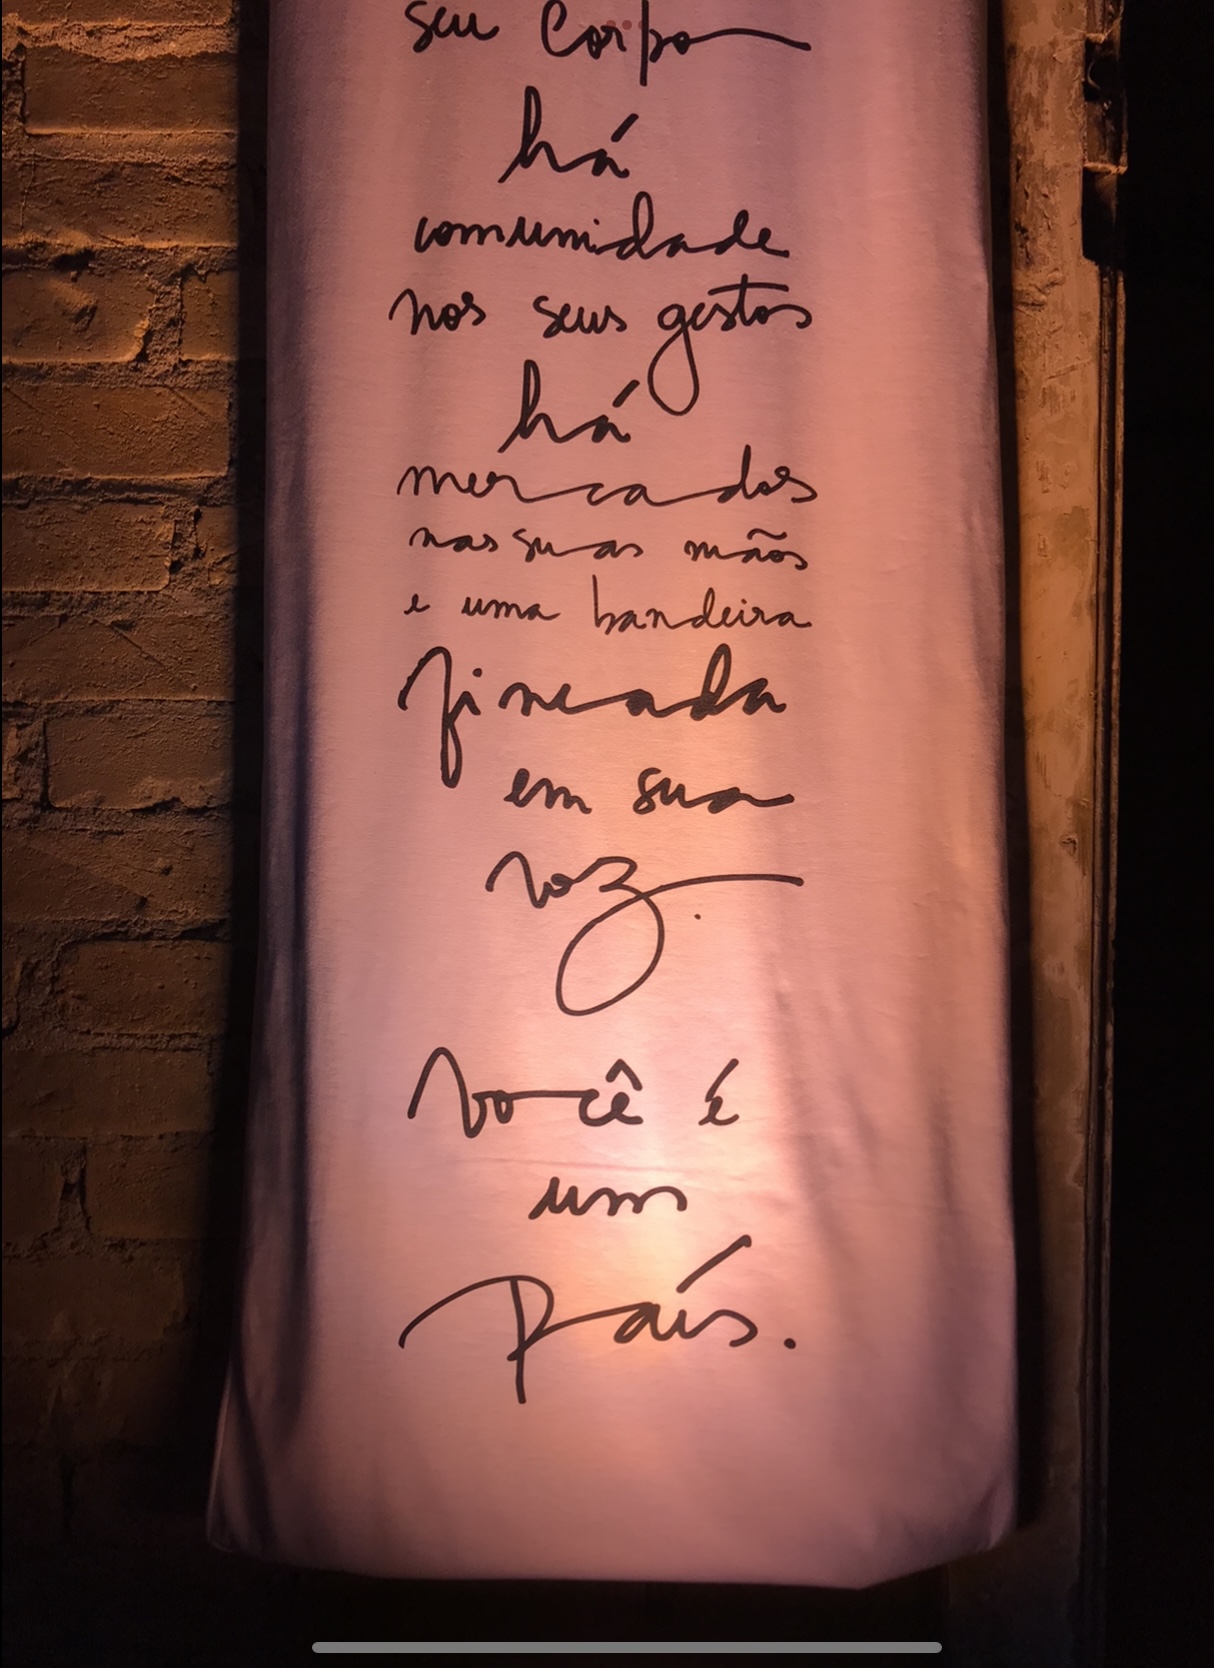 seu corpo
há
comunidade
nos seus gestos
há
mercados
nas suas mãos
e uma bandeira
fincada
em sua
voz.
Você é
um
país.